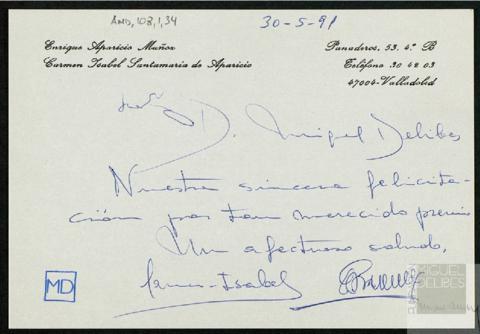 AMD, 108, 1, 34
30-5-91
Enrique Aparicio Muñoz
Carmen Isabel Santamaria de Aparicio
Panaderos, 53, 4.º B
Teléfono 30 42 03
47004-Valladolid
D. Miguel Delibes
Nuestra sincera felicita-
ción por tan merecido premio
Un afectuoso saludo,
Carmen-Isabel
MD
MIGUEL
DELIBES